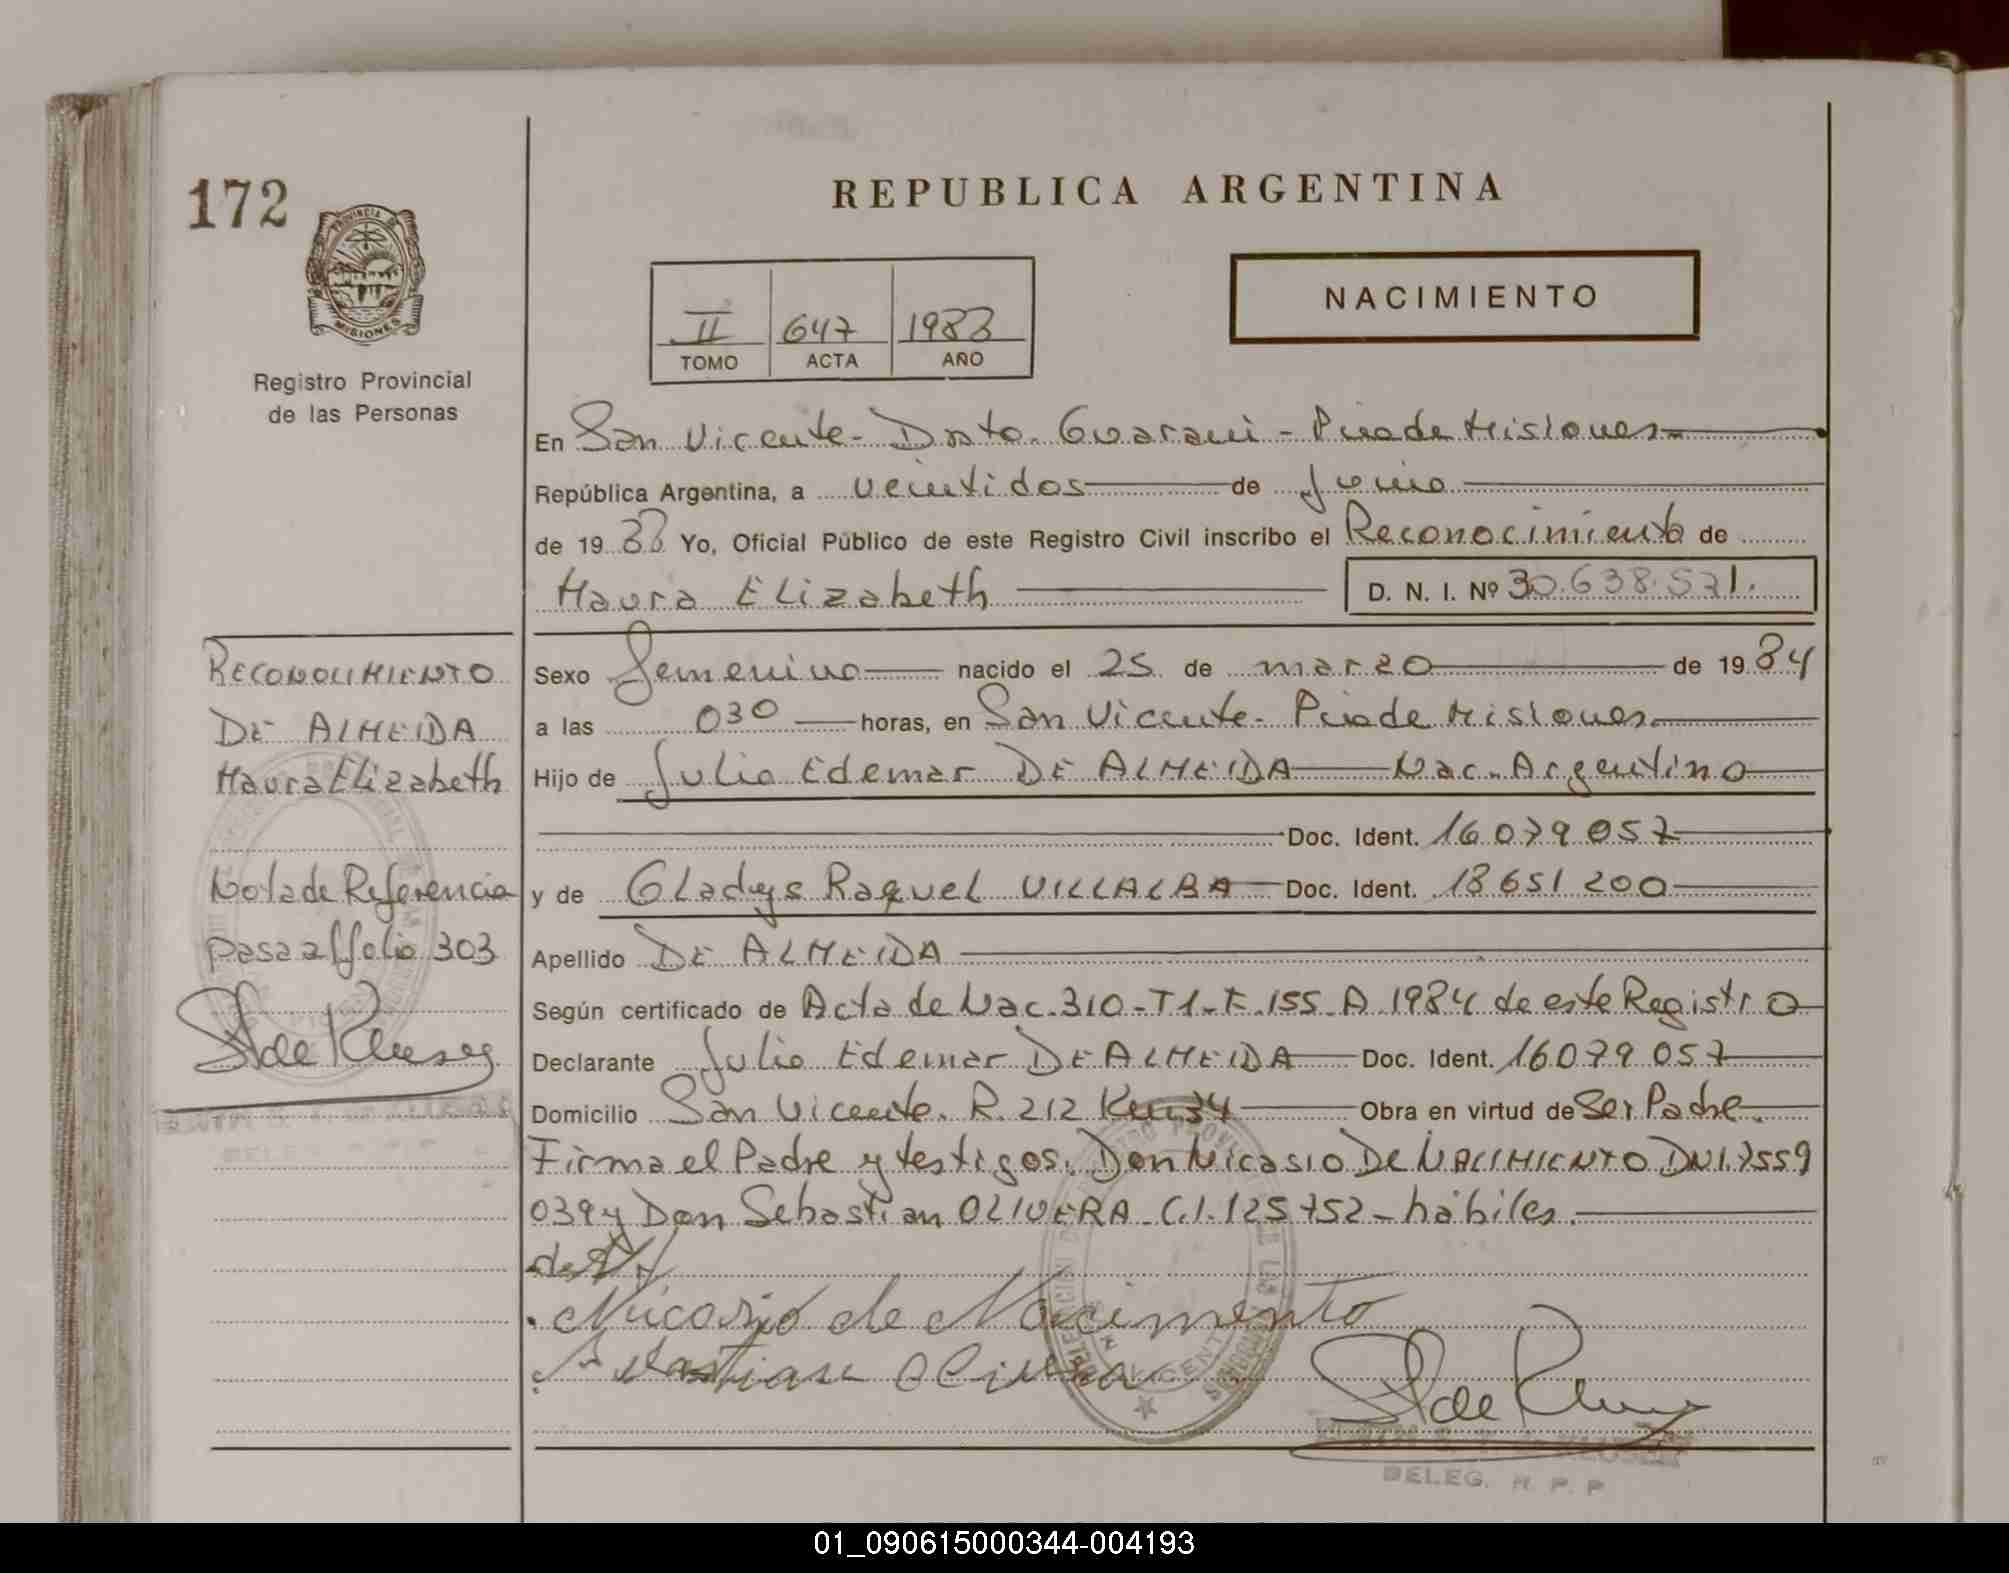 172
REPUBLICA ARGENTINA
PROVINCIA DE
MISIONES
Registro Provincial
de las Personas
II 647 1988
TOMO ACTA AÑO
NACIMIENTO
En San Vicente - Dpto. Guarani - Pciade Misiones
República Argentina, a veintidos de Junio
de 19 88 Yo, Oficial Público de este Registro Civil inscribo el Reconocimiento de
Maura Elizabeth D. N. I. Nº 30.638.571.
RECONOCIMIENTO
DE ALMEIDA
Maura Elizabeth
Nota de Referencia
pasa al folio 303
Sexo Femenino nacido el 25 de marzo de 19 84
a las 030 horas, en San Vicente - Pciade Misiones
Hijo de Julio Edemar DE ALMEIDA Nac. Argentino
Doc. Ident. 16.079.057
y de Gladys Raquel VILLALBA Doc. Ident. 18.651.200
Apellido DE ALMEIDA
Según certificado de Acta de Nac. 310 - T1 - F. 155 - A. 1984 de este Registro
Declarante Julio Edemar DE ALMEIDA Doc. Ident. 16.079.057
Domicilio San Vicente. R. 212 Km 34 Obra en virtud de Ser Padre.
Firma el Padre y testigos. Don Nicasio DE NACIMIENTO DNI. 7559
039 y Don Sebastian OLIVERA - C.I. 125752 - hábiles.
Nicasio de Nacimento
Sebastian Olivera
DELEG. R. P. P.
01_090615000344-004193